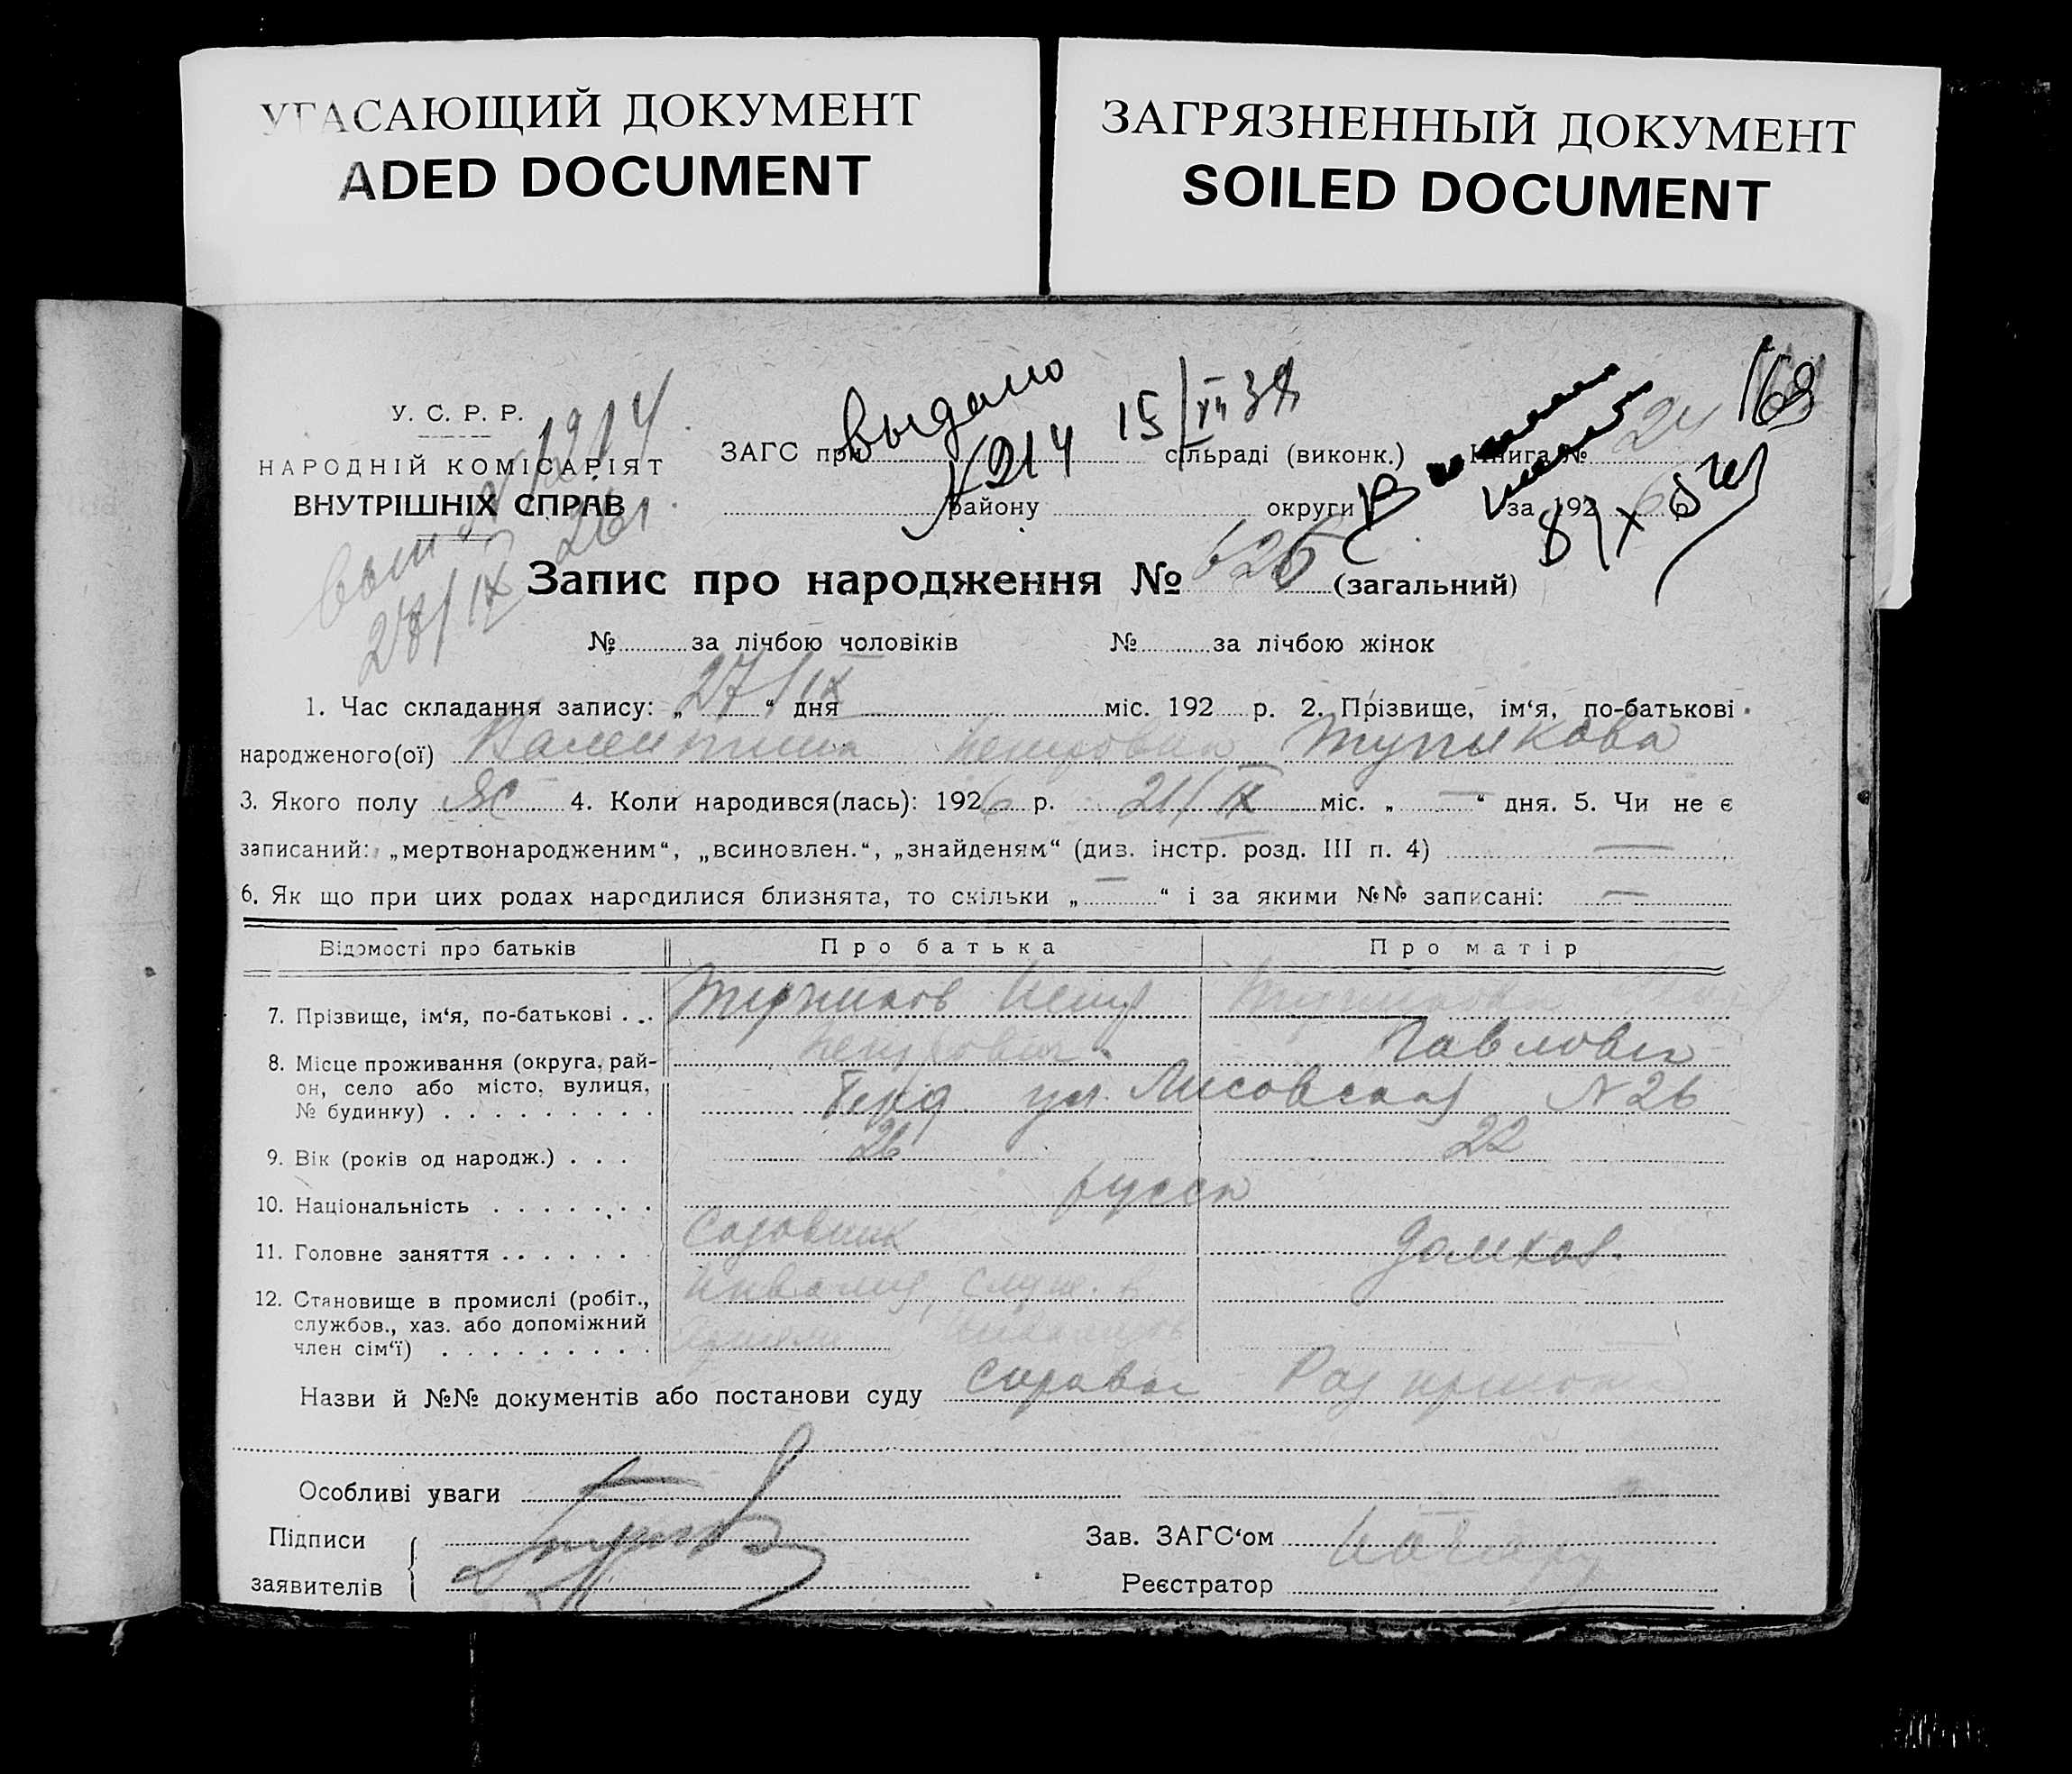 УГАСАЮЩИЙ ДОКУМЕНТ
ADED DOCUMENT
ЗАГРЯЗНЕННЫЙ ДОКУМЕНТ
SOILED DOCUMENT
У. С. Р. Р.
НАРОДНІЙ КОМІСАРІЯТ
ВНУТРІШНІХ СПРАВ
N 1214
27/IX 26г.
Выдано
1214 15/VII 39
168
ЗАГС при сільраді (виконк.) Книга № 24
району округи за 1926 р.
8/X
Запис про народження № 626 (загальний)
№ за лічбою чоловіків № за лічбою жінок
1. Час складання запису: „ 27/IX “ дня міс. 192 р. 2. Прізвище, ім‘я, по-батькові
народженого(ої) Валентина Петровна Тупикова
3. Якого полу Ж 4. Коли народився(лась): 1926 р. 21/IX міс. „ — “ дня. 5. Чи не є
записаний: „мертвонародженим“, „всиновлен.“, „знайденям“ (див. інстр. розд. III п. 4) —
6. Як що при цих родах народилися близнята, то скільки „ — “ і за якими №№ записані: —
Відомості про батьків Про батька Про матір
7. Прізвище, ім‘я, по-батькові . . . Тупиков Петр Тупикова
Петрович Павловна
8. Місце проживання (округа, рай-
он, село або місто, вулиця,
№ будинку) . . . . . . . . . ул. Лисовская N 26
9. Вік (років од народж.) . . . 26 22
10. Національність . . . . . . . русск
11. Головне заняття . . . . . . . Садовник домхоз.
12. Становище в промислі (робіт.,
службов., хаз. або допоміжний
член сім‘ї) . . . . . . . . . Инвалид, служ. в
Назви й №№ документів або постанови суду справка
Особливі уваги
Підписи
заявителів
Зав. ЗАГС‘ом
Реєстратор